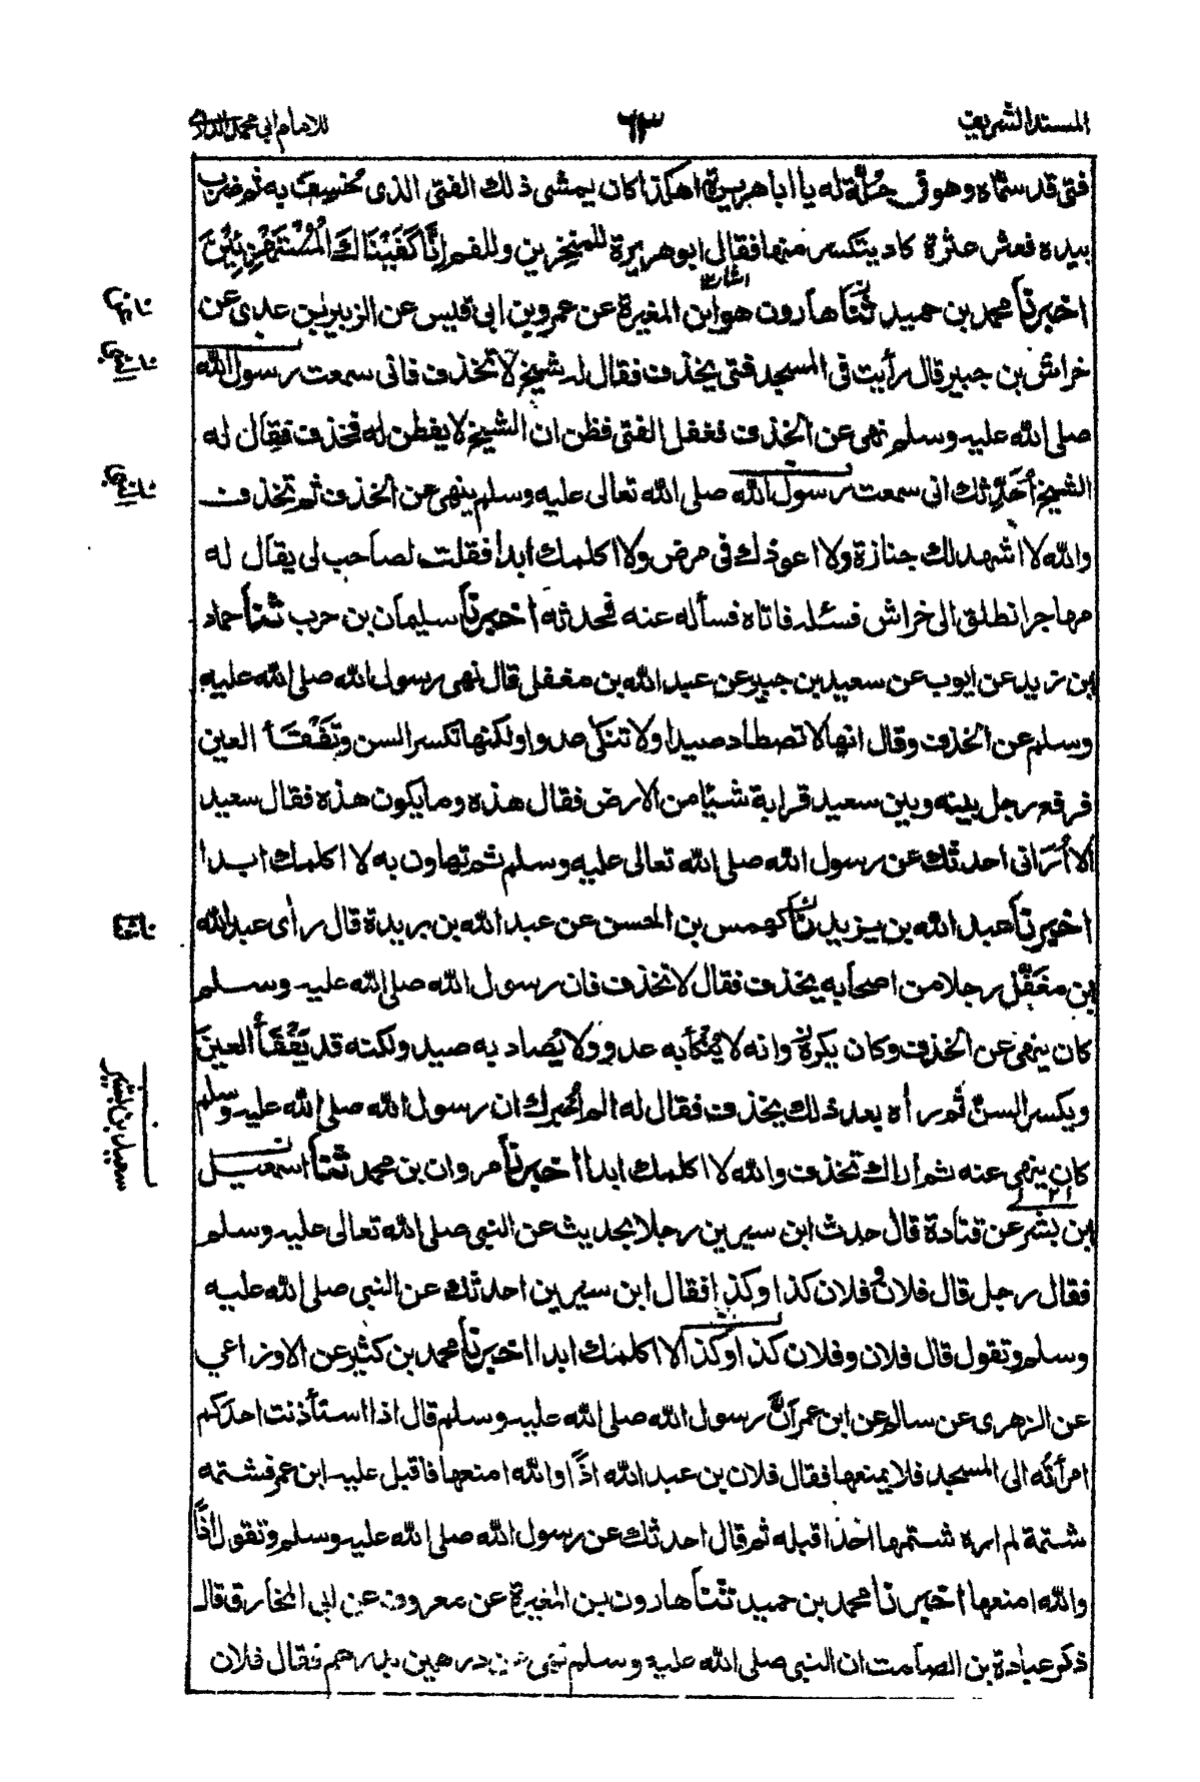 المسند الشريف
٦٣
للامام ابي محمد الدارمي
فتى قد سمّاه وهو في حُلَّة له يا ابا هريرة اهكذا كان يمشي ذلك الفتى الذي خُسِفَ به ثم ضرب
بيده فعثر عثرة كاد يتكسر منها فقال ابو هريرة للمنخرين وللفم إنَّا كَفَيْنَاكَ الْمُسْتَهْزِئِيْنَ
اخبرنا محمد بن حميد ثنا هارون هو ابن المغيرة عن عمرو بن ابي قيس عن الزبير بن عدي عن
خراش بن جبير قال رأيت في المسجد فتى يخذف فقال له شيخ لا تخذف فاني سمعت رسول الله
صلى الله عليه وسلم نهى عن الخذف فغفل الفتى فظن ان الشيخ لا يفطن له فخذف فقال له
الشيخ أحدثك اني سمعت رسول الله صلى الله تعالى عليه وسلم ينهى عن الخذف ثم تخذف
والله لا اشهد لك جنازة ولا اعودك في مرض ولا اكلمك ابدا فقلت لصاحب لي يقال له
مهاجر انطلق الى خراش فسئله فاتاه فسأله عنه فحدثه اخبرنا سليمان بن حرب ثنا حماد
بن زيد عن ايوب عن سعيد بن جبير عن عبد الله بن مغفل قال نهى رسول الله صلى الله عليه
وسلم عن الخذف وقال انها لا تصطاد صيدا ولا تنكى عدوا ولكنها تكسر السن وتَفْقَأ العين
فرفع رجل بينه وبين سعيد قرابة شيئا من الارض فقال هذه وما يكون هذه فقال سعيد
ألا أَراني احدثك عن رسول الله صلى الله تعالى عليه وسلم ثم تهاون به لا اكلمك ابدا
اخبرنا عبد الله بن يزيد ثنا كهمس بن الحسن عن عبد الله بن بريدة قال رأى عبد الله
بن مغَفَّل رجلا من اصحابه يخذف فقال لا تخذف فان رسول الله صلى الله عليه وسلم
كان ينهى عن الخذف وكان يكرهه وانه لا يُنْكَأ به عدو ولا يُصاد به صيد ولكنه قد يَفْقَأُ العينَ
ويكسر السنّ ثم رأه بعد ذلك يخذف فقال له الم اُخبرك ان رسول الله صلى الله عليه وسلم
كان ينهى عنه ثم أراك تخذف والله لا اكلمك ابدا اخبرنا مروان بن محمد ثنا اسمعيل
ابن بشر عن قتادة قال حدث ابن سيرين رجلا بحديث عن النبي صلى الله تعالى عليه وسلم
فقال رجل قال فلان وفلان كذا وكذا فقال ابن سيرين احدثك عن النبي صلى الله عليه
وسلم وتقول قال فلان وفلان كذا وكذا لا اكلمك ابدا اخبرنا محمد بن كثير عن الاوزاعي
عن الزهري عن سالم عن ابن عمر أنّ رسول الله صلى الله عليه وسلم قال اذا استأذنت احدكم
امرأتُه الى المسجد فلا يمنعها فقال فلان بن عبد الله اذًا والله امنعها فاقبل عليه ابن عمر فشتمه
شتمة لم اره شتمها احدا قبله ثم قال احدثك عن رسول الله صلى الله عليه وسلم وتقول اذًا
والله امنعها اخبرنا محمد بن حميد ثنا هارون بن المغيرة عن معروف عن ابي المخارق قال
ذكر عبادة بن الصامت ان النبي صلى الله عليه وسلم نهى عن درهمين بدرهم فقال فلان